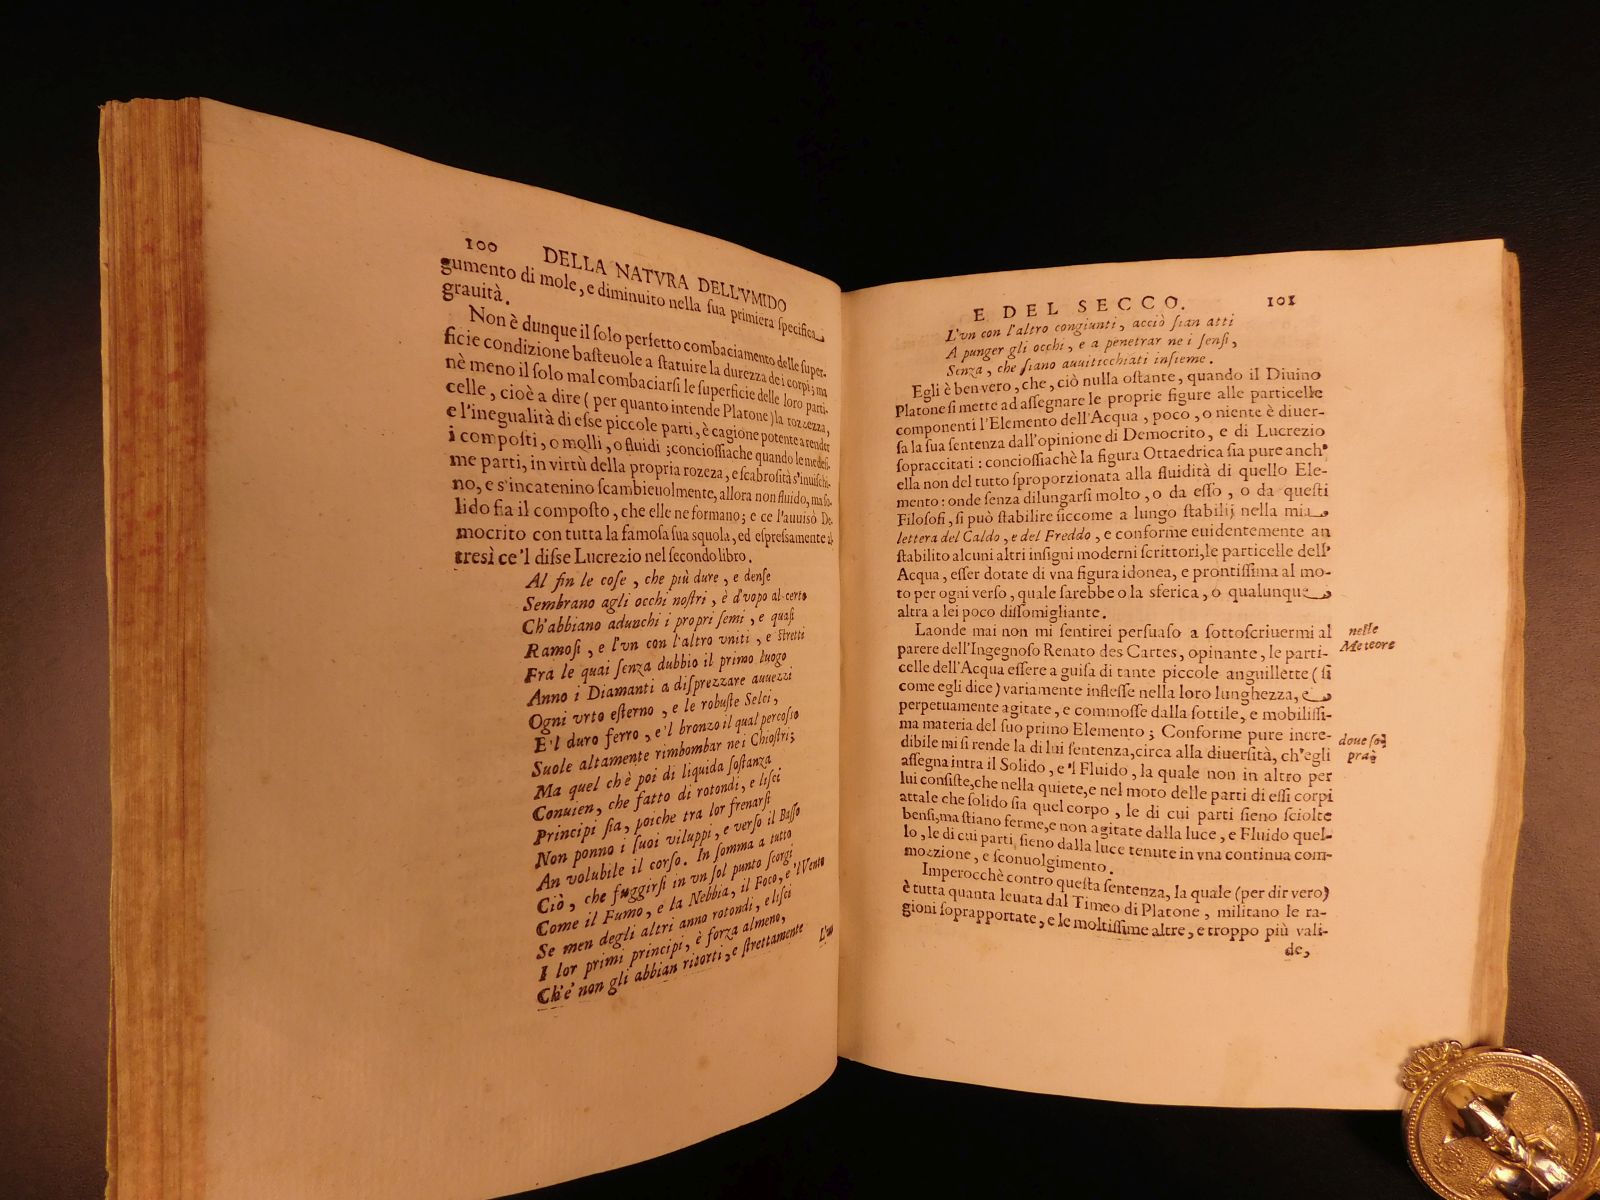 100 DELLA NATVRA DELL'VMIDO
gumento di mole, e diminuito nella sua primiera specifica
grauità.
Non è dunque il ſolo perfetto combaciamento delle ſuper-
ficie condizione baſteuole a ſtatuire la durezza dei corpi; ma
nè meno il ſolo mal combaciarſi le ſuperficie delle loro parti-
celle, cioè a dire (per quanto intende Platone) la rozzezza,
e l'inegualità di eſſe piccole parti, è cagione potente a render
i compoſti, o molli, o fluidi; concioſſiache quando le medeſi-
me parti, in virtù della propria rozeza, e ſcabroſità s'inuiſchi-
no, e s'incatenino ſcambieuolmente, allora non fluido, ma ſo-
lido fia il compoſto, che elle ne formano; e ce l'auuisò De-
mocrito con tutta la famoſa ſua squola, ed eſpreſsamente al-
tresì ce 'l diſse Lucrezio nel ſecondo libro.
Al fin le coſe, che più dure, e denſe
Sembrano agli occhi noſtri, è d'vopo al certo
Ch'abbiano adunchi i propri ſemi, e quaſi
Ramoſi, e l'vn con l'altro vniti, e ſtretti
Fra le quai ſenza dubbio il primo luogo
Anno i Diamanti a diſprezzare auuezzi
Ogni vrto eſterno, e le robuſte Selci,
E'l duro ferro, e'l bronzo il qual percoſſo
Suole altamente rimbombar nei Chioſtri;
Ma quel ch'è poi di liquida ſoſtanza
Conuien, che fatto di rotondi, e liſci
Principi ſia, poiche tra lor frenarſi
Non ponno i ſuoi viluppi, e verſo il Baſſo
An volubile il corſo. In ſomma a tutto
Ciò, che fuggirſi in vn ſol punto ſcorgi
Come il Fumo, e la Nebbia, il Foco, e 'l Vento
Se men degli altri anno rotondi, e liſci
I lor primi principi, è forza almeno,
Ch'e' non gli abbian ritorti, e ſtrettamente
L'vn
E DEL SECCO. 101
L'vn con l'altro congiunti, acciò ſian atti
A punger gli occhi, e a penetrar ne i ſenſi,
Senza, che ſiano auuiticchiati inſieme.
Egli è ben vero, che, ciò nulla oſtante, quando il Diuino
Platone ſi mette ad aſſegnare le proprie figure alle particelle
componenti l'Elemento dell'Acqua, poco, o niente è diuer-
ſa la ſua ſentenza dall'opinione di Democrito, e di Lucrezio
ſopraccitati: concioſſiachè la figura Ottaedrica ſia pure anch'
ella non del tutto ſproporzionata alla fluidità di quello Ele-
mento: onde ſenza dilungarſi molto, o da eſſo, o da queſti
Filoſofi, ſi può ſtabilire ſiccome a lungo ſtabilij nella mia
lettera del Caldo, e del Freddo, e conforme euidentemente an
ſtabilito alcuni altri inſigni moderni ſcrittori, le particelle dell'
Acqua, eſſer dotate di vna figura idonea, e prontiſſima al mo-
to per ogni verſo, quale ſarebbe o la sferica, o qualunque
altra a lei poco diſſomigliante.
Laonde mai non mi ſentirei perſuaſo a ſottoſcriuermi al
parere dell'Ingegnoſo Renato des Cartes, opinante, le parti-
celle dell'Acqua eſſere a guiſa di tante piccole anguillette (ſi
come egli dice) variamente infleſſe nella loro lunghezza, e
perpetuamente agitate, e commoſſe dalla ſottile, e mobiliſſi-
ma materia del ſuo primo Elemento; Conforme pure incre-
dibile mi ſi rende la di lui ſentenza, circa alla diuerſità, ch'egli
aſſegna intra il Solido, e 'l Fluido, la quale non in altro per
lui conſiſte, che nella quiete, e nel moto delle parti di eſſi corpi
attale che ſolido ſia quel corpo, le di cui parti ſieno ſciolte
bensì, ma ſtiano ferme, e non agitate dalla luce, e Fluido quel-
lo, le di cui parti, ſieno dalla luce tenute in vna continua com-
mozzione, e ſconuolgimento.
Imperocchè contro queſta ſentenza, la quale (per dir vero)
è tutta quanta leuata dal Timeo di Platone, militano le ra-
gioni ſoprapportate, e le moltiſſime altre, e troppo più vali-
de,
nelle
Meteore
doue ſo-
pra